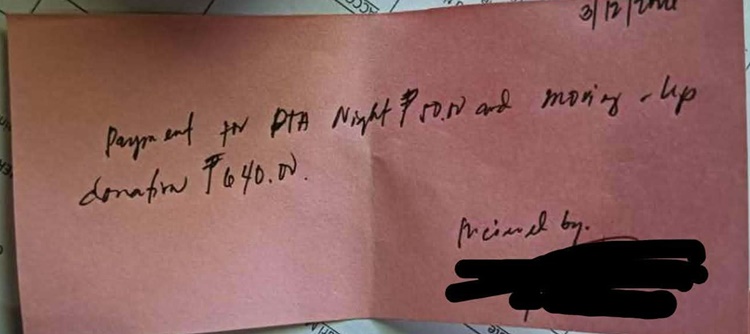 3/12/
Payment for PTA Night ₱50.00 and moving-up
donation ₱640.00.
Received by.